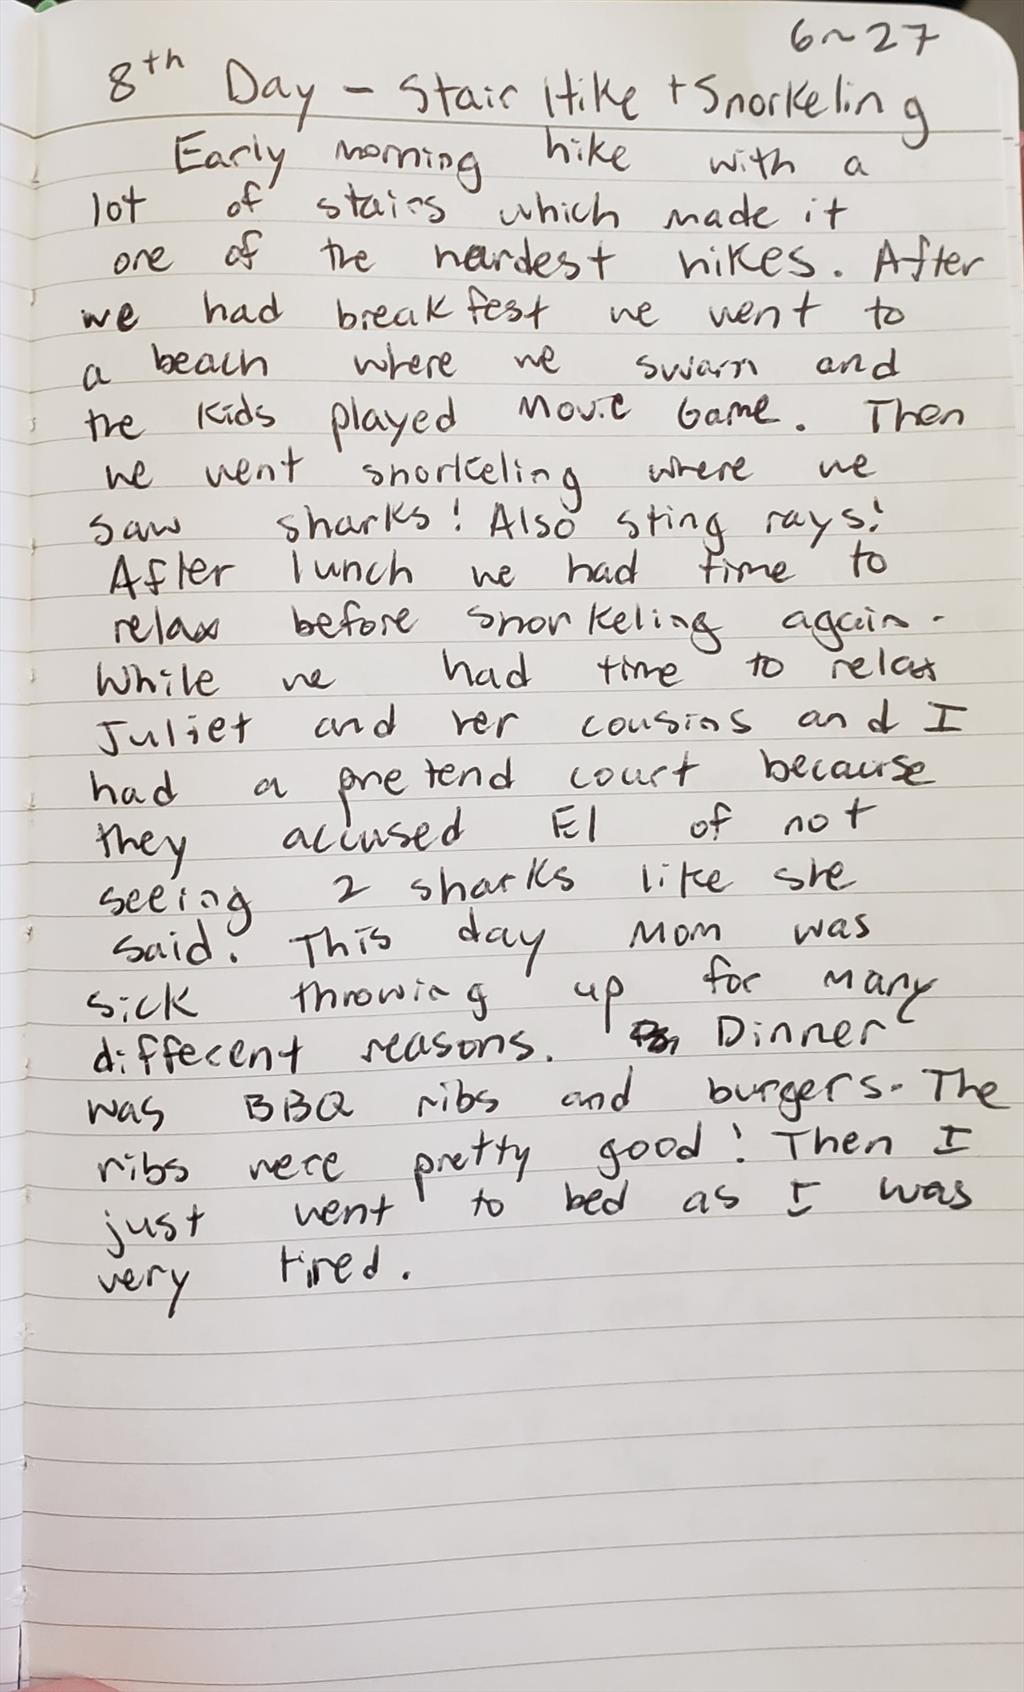 6~27
8th Day - Stair Hike + Snorkeling
Early morning hike with a
lot of stairs which made it
one of the hardest hikes. After
we had breakfest we went to
a beach where we swam and
the kids played Movie Game. Then
we went snorkeling where we
saw sharks! Also sting rays!
After lunch we had time to
relax before snorkeling again.
While we had time to relax
Juliet and her cousins and I
had a pretend court because
they accused El of not
seeing 2 sharks like she
said. This day Mom was
sick throwing up for many
different reasons. Dinner
was BBQ ribs and burgers. The
ribs were pretty good! Then I
just went to bed as I was
very tired.